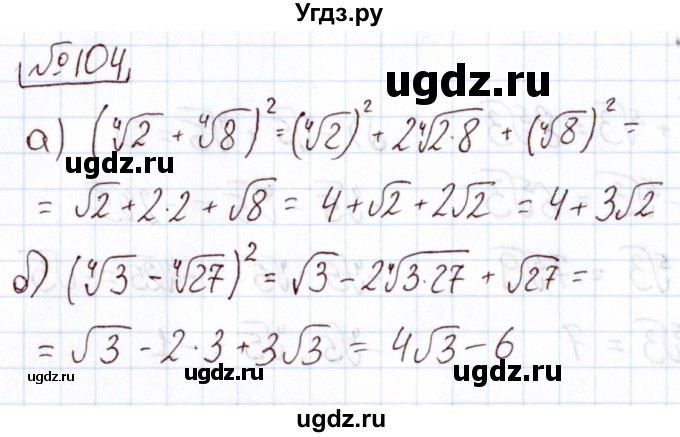 Угдз.ру
№104
ugdz.ru
а) (⁴√2 + ⁴√8)² = (⁴√2)² + 2⁴√2·8 + (⁴√8)² =
ugdz.ru ugdz.ru
= √2 + 2·2 + √8 = 4 + √2 + 2√2 = 4 + 3√2
ugdz.ru
б) (⁴√3 - ⁴√27)² = √3 - 2⁴√3·27 + √27 =
= √3 - 2·3 + 3√3 = 4√3 - 6
ugdz.ru ugdz.ru ugdz.ru
ugdz.ru